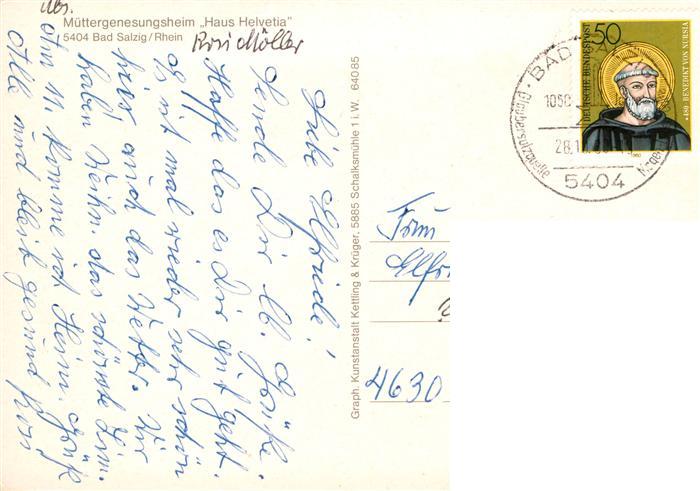 Müttergenesungsheim „Haus Helvetia“
5404 Bad Salzig/Rhein
Rosi Möller
Liebe Elfriede!
Sende Dir ll. Grüße.
Hoffe das es Dir gut geht.
Es ist mal wieder sehr schön
hier auch das Wetter. Wir
haben das schönste Zim.
Am 11. komme ich Heim. Grüß
Alle und bleib gesund
Graph. Kunstanstalt Kettling & Krüger, 5885 Schalksmühle 1 i. W. 64085
50
DEUTSCHE BUNDESPOST
480 BENEDIKT VON NURSIA
1980
BAD
5404
Frau
4630